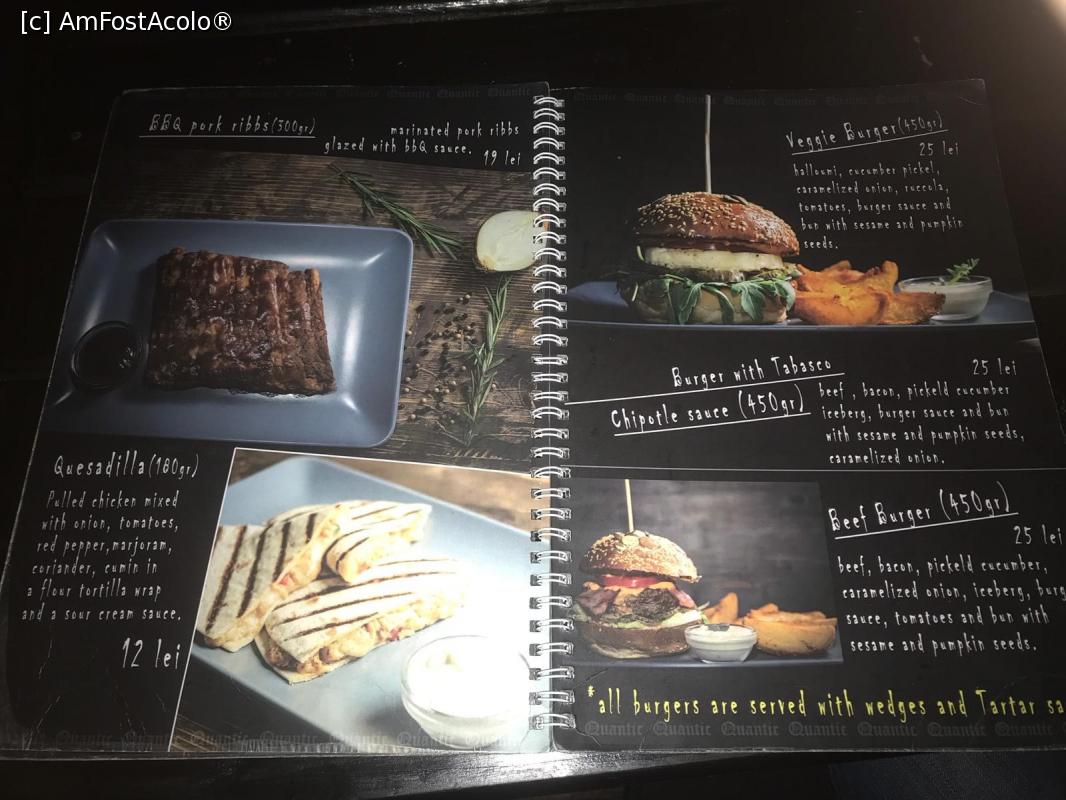 [c] AmFostAcolo®
Quantic Quantic Quantic Quantic
BBQ pork ribbs(300gr)
marinated pork ribbs
glazed with bbQ sauce. 19 lei
Quesadilla(180gr)
Pulled chicken mixed
with onion, tomatoes,
red pepper,marjoram,
coriander, cumin in
a flour tortilla wrap
and a sour cream sauce.
12 lei
Veggie Burger(450gr)
25 lei
halloumi, cucumber pickel,
caramelized onion, ruccola,
tomatoes, burger sauce and
bun with sesame and pumpkin
seeds.
Burger with Tabasco
Chipotle sauce (450gr)
25 lei
beef, bacon, pickeld cucumber
iceberg, burger sauce and bun
with sesame and pumpkin seeds,
caramelized onion.
Beef Burger (450gr)
25 lei
beef, bacon, pickeld cucumber,
caramelized onion, iceberg, burg
sauce, tomatoes and bun with
sesame and pumpkin seeds.
*all burgers are served with wedges and Tartar sa
Quantic Quantic Quantic Quantic Quantic Quantic